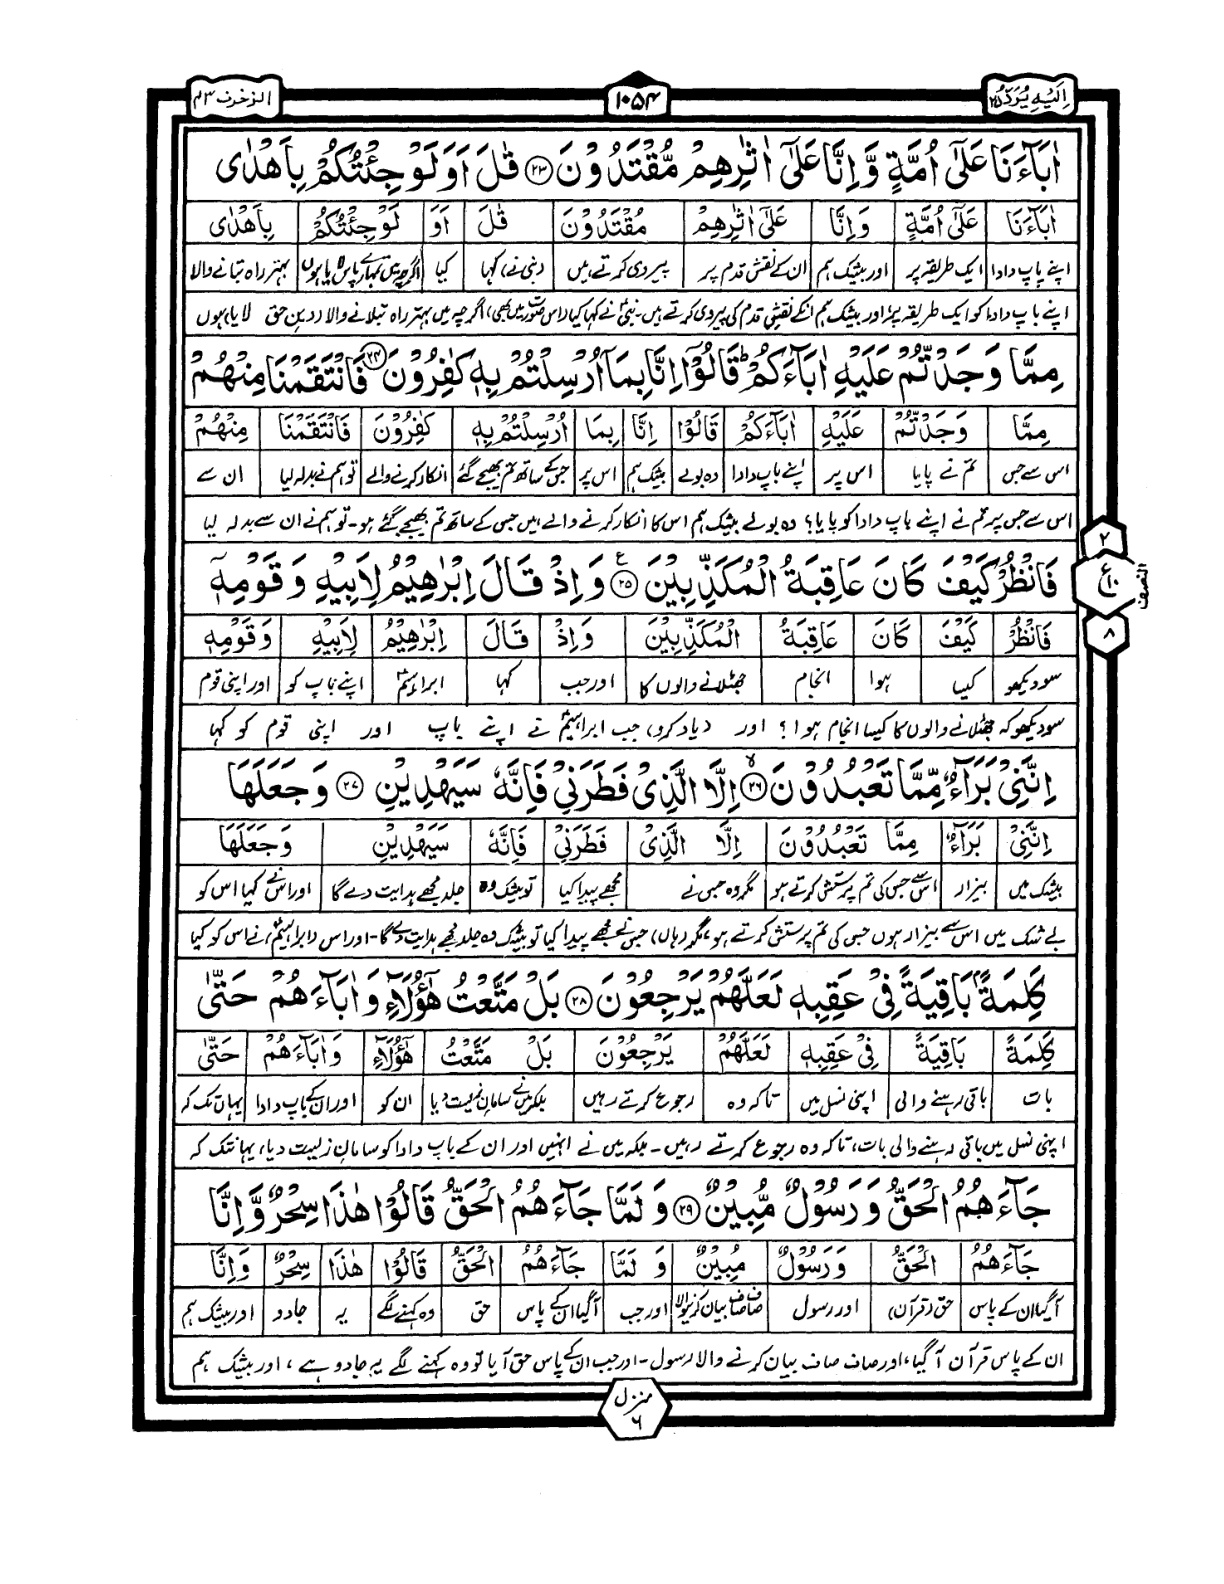 اِلَيْهِ يُرَدُّ ٢٥
١٠٥٤
الزخرف ٤٣
اٰبَآءَنَا عَلٰٓى اُمَّةٍ وَّاِنَّا عَلٰٓى اٰثٰرِهِمْ مُّقْتَدُوْنَ ٢٣ قٰلَ اَوَلَوْ جِئْتُكُمْ بِاَهْدٰى
اٰبَآءَنَا عَلٰٓى اُمَّةٍ وَاِنَّا عَلٰٓى اٰثٰرِهِمْ مُقْتَدُوْنَ قٰلَ اَوَ لَوْ جِئْتُكُمْ بِاَهْدٰى
اپنے باپ دادا ایک طریقہ پر اور بیشک ہم ان کے نقش قدم پر پیروی کرتے ہیں (نبی نے) کہا کیا اگرچہ میں تمہارے پاس لایا ہوں بہتر راہ بتانے والا
اپنے باپ دادا کو ایک طریقہ پر، اور بیشک ہم انکے نقشِ قدم کی پیروی کرتے ہیں۔ نبیؐ نے کہا کیا (اس صورت میں بھی) اگرچہ میں بہتر راہ بتلانے والا (دین حق) لایا ہوں
مِمَّا وَجَدْتُّمْ عَلَيْهِ اٰبَآءَكُمْ ؕ قَالُوْٓا اِنَّا بِمَآ اُرْسِلْتُمْ بِهٖ كٰفِرُوْنَ ٢٤ فَانْتَقَمْنَا مِنْهُمْ
مِمَّا وَجَدْتُّمْ عَلَيْهِ اٰبَآءَكُمْ قَالُوْٓا اِنَّا بِمَا اُرْسِلْتُمْ بِهٖ كٰفِرُوْنَ فَانْتَقَمْنَا مِنْهُمْ
اس سے جس تم نے پایا اس پر اپنے باپ دادا وہ بولے بیشک ہم اس پر جس کے ساتھ تم بھیجے گئے انکار کرنے والے تو ہم نے بدلہ لیا ان سے
اس سے جس پر تم نے اپنے باپ دادا کو پایا؟ وہ بولے بیشک ہم اس کا انکار کرنے والے ہیں جس کے ساتھ تم بھیجے گئے ہو۔ تو ہم نے ان سے بدلہ لیا
فَانْظُرْ كَيْفَ كَانَ عَاقِبَةُ الْمُكَذِّبِيْنَ ٢٥ ع وَاِذْ قَالَ اِبْرٰهِيْمُ لِاَبِيْهِ وَقَوْمِهٖٓ
٢
ع ١٠
٨
النصف
فَانْظُرْ كَيْفَ كَانَ عَاقِبَةُ الْمُكَذِّبِيْنَ وَاِذْ قَالَ اِبْرٰهِيْمُ لِاَبِيْهِ وَقَوْمِهٖٓ
سو دیکھو کیسا ہوا انجام جھٹلانے والوں کا اور جب کہا ابراہیمؑ اپنے باپ کو اور اپنی قوم
سو دیکھو کہ جھٹلانے والوں کا کیسا انجام ہوا؟ اور (یاد کرو) جب ابراہیمؑ نے اپنے باپ اور اپنی قوم کو کہا
اِنَّنِيْ بَرَآءٌ مِّمَّا تَعْبُدُوْنَ ٢٦ لا اِلَّا الَّذِيْ فَطَرَنِيْ فَاِنَّهٗ سَيَهْدِيْنِ ٢٧ وَجَعَلَهَا
اِنَّنِيْ بَرَآءٌ مِمَّا تَعْبُدُوْنَ اِلَّا الَّذِيْ فَطَرَنِيْ فَاِنَّهٗ سَيَهْدِيْنِ وَجَعَلَهَا
بیشک میں بیزار اس سے جس کی تم پرستش کرتے ہو مگر وہ جس نے مجھے پیدا کیا تو بیشک وہ جلد مجھے ہدایت دے گا اور اس نے کیا اس کو
بے شک میں اس سے بیزار ہوں جس کی تم پرستش کرتے ہو، مگر (ہاں) جس نے مجھے پیدا کیا تو بیشک وہ جلد مجھے ہدایت دے گا۔ اور اس (ابراہیمؑ) نے اس کو کیا
كَلِمَةًۢ بَاقِيَةً فِيْ عَقِبِهٖ لَعَلَّهُمْ يَرْجِعُوْنَ ٢٨ بَلْ مَتَّعْتُ هٰٓؤُلَآءِ وَاٰبَآءَهُمْ حَتّٰى
كَلِمَةً بَاقِيَةً فِيْ عَقِبِهٖ لَعَلَّهُمْ يَرْجِعُوْنَ بَلْ مَتَّعْتُ هٰٓؤُلَآءِ وَاٰبَآءَهُمْ حَتّٰى
بات باقی رہنے والی اپنی نسل میں تاکہ وہ رجوع کرتے رہیں بلکہ میں نے سامان زیست دیا ان کو اور ان کے باپ دادا یہاں تک کہ
اپنی نسل میں باقی رہنے والی بات، تاکہ وہ رجوع کرتے رہیں۔ بلکہ میں نے انہیں اور ان کے باپ دادا کو سامانِ زیست دیا، یہانتک کہ
جَآءَهُمُ الْحَقُّ وَرَسُوْلٌ مُّبِيْنٌ ٢٩ وَلَمَّا جَآءَهُمُ الْحَقُّ قَالُوْا هٰذَا سِحْرٌ وَّاِنَّا
جَآءَهُمُ الْحَقُّ وَرَسُوْلٌ مُبِيْنٌ وَلَمَّا جَآءَهُمُ الْحَقُّ قَالُوْا هٰذَا سِحْرٌ وَاِنَّا
آگیا ان کے پاس حق (قرآن) اور رسول صاف صاف بیان کرنیوالا اور جب آگیا ان کے پاس حق وہ کہنے لگے یہ جادو اور بیشک ہم
ان کے پاس قرآن آگیا، اور صاف صاف بیان کرنے والا رسول۔ اور جب ان کے پاس حق آیا تو وہ کہنے لگے یہ جادو ہے، اور بیشک ہم
منزل
٦